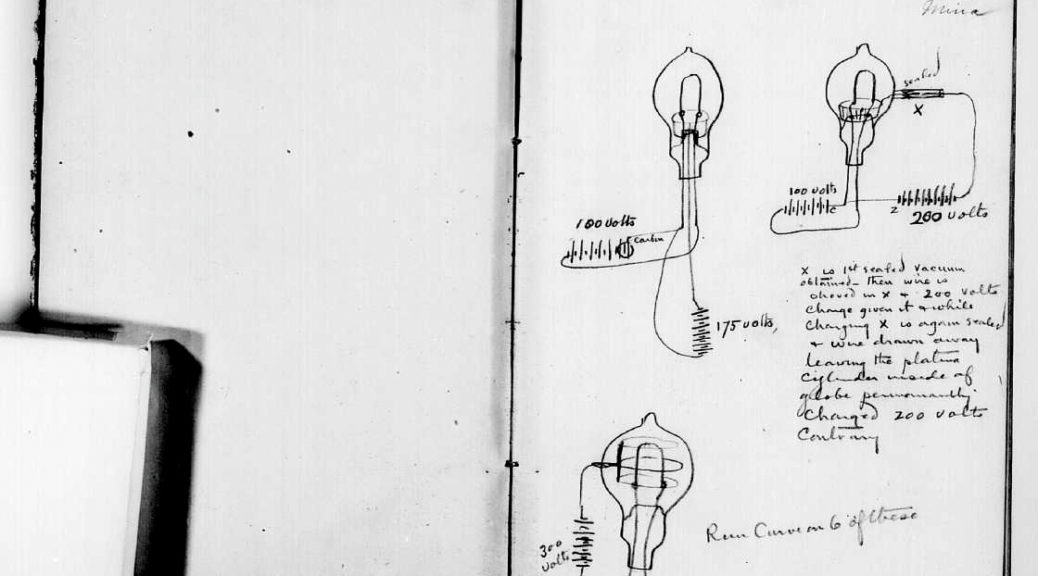 Mina
100 volts
carbon
175 volts,
sealed
X
100 volts
c
Z
200 volts
X is 1st sealed vacuum
obtained - then wire is
shoved in X & 200 volts
charge given it & while
charging X is again sealed
& wire drawn away
leaving the platina
cylinder inside of
globe permanantly
Charged 200 volts
Contrary
300
volts
Run Curve on 6 of these